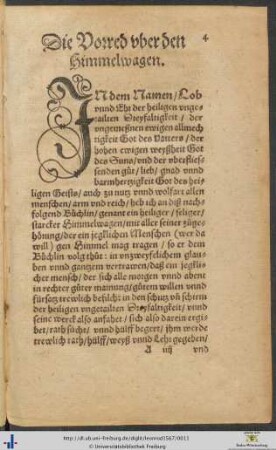 Die Vorred vber den
Himmelwagen.
IN dem Namen / Lob
vnnd Ehr der heiligen vnge-
tailten Dreyfaltigkeit / der
vngemeßnen ewigen allmech
tigkeit Got des Vatters / der
hohen ewigen weyßheit Got
des Suns / vnd der vberfliess-
senden güt / lieb / gnad vnnd
barmhertzigkeit Got des hei-
ligen Geists / auch zu nutz vnnd wolfart allen
menschen / arm vnd reich / heb ich an diß nach-
folgend Büchlin / genant ein heiliger / seliger /
starcker Himmelwagen / mit aller seiner zůge
hörung / der ein jegklichen Menschen (wer da
will) gen Himmel mag tragen / so er dem
Büchlin volgt thůt : in vnzweyfelichem glau-
ben vnnd gantzem vertrawen / daß ein jegkli-
cher mensch / der sich alle morgen vnnd abent
in rechter gůter mainung / gůtem willen vnnd
fürsatz trewlich befilcht in den schutz vñ schirm
der heiligen vngetailten Dreyfaltigkeit / vnnd
seine werck also anfahet / sich also darein ergi-
bet / rath sůcht / vnnd hülff begert / ihm werde
trewlich rath / hülff / weyß vnnd Lehr gegeben /
A iij vnd
http://dl.ub.uni-freiburg.de/diglit/leonrod1567/0011
© Universitätsbibliothek Freiburg